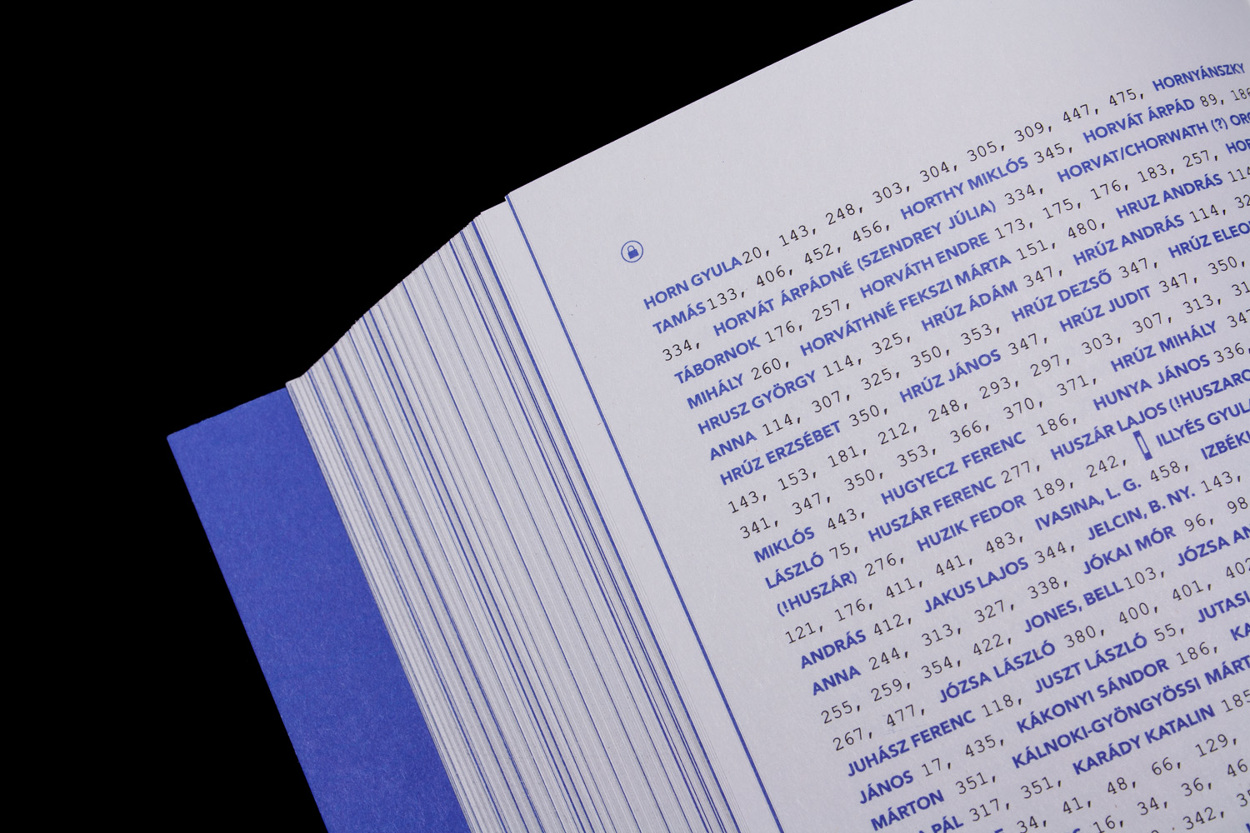 HORN GYULA 20, 143, 248, 303, 304, 305, 309, 447, 475, HORNYÁNSZKY
TAMÁS 133, 406, 452, 456, HORTHY MIKLÓS 345, HORVÁT ÁRPÁD 89,
334, HORVÁT ÁRPÁDNÉ (SZENDREY JÚLIA) 334, HORVAT/CHORWATH (?)
TÁBORNOK 176, 257, HORVÁTH ENDRE 173, 175, 176, 183, 257,
MIHÁLY 260, HORVÁTHNÉ FEKSZI MÁRTA 151, 480, HRUZ ANDRÁS
HRUSZ GYÖRGY 114, 325, HRÚZ ÁDÁM 347, HRÚZ ANDRÁS 114,
ANNA 114, 307, 325, 350, 353, HRÚZ DEZSŐ 347, HRÚZ
HRÚZ ERZSÉBET 350, HRÚZ JÁNOS 347, HRÚZ JUDIT 347, 350,
143, 153, 181, 212, 248, 293, 297, 303, 307, 313,
341, 347, 350, 353, 366, 370, 371, HRÚZ MIHÁLY
MIKLÓS 443, HUGYECZ FERENC 186, HUNYA JÁNOS 336,
LÁSZLÓ 75, HUSZÁR FERENC 277, HUSZÁR LAJOS
(!HUSZÁR) 276, HUZIK FEDOR 189, 242, ILLYÉS
121, 176, 411, 441, 483, IVASINA, L. G. 458,
ANDRÁS 412, JAKUS LAJOS 344, JELCIN, B. NY. 143,
ANNA 244, 313, 327, 338, JÓKAI MÓR 96,
255, 259, 354, 422, JONES, BELL 103, JÓZSA
267, 477, JÓZSA LÁSZLÓ 380, 400, 401,
JUHÁSZ FERENC 118, JUSZT LÁSZLÓ 55,
JÁNOS 17, 435, KÁKONYI SÁNDOR 186,
MÁRTON 351, KÁLNOKI-GYÖNGYÖSSI
PÁL 317, 351, KARÁDY KATALIN
34, 41, 48, 66, 129,
16, 34, 36,
342,